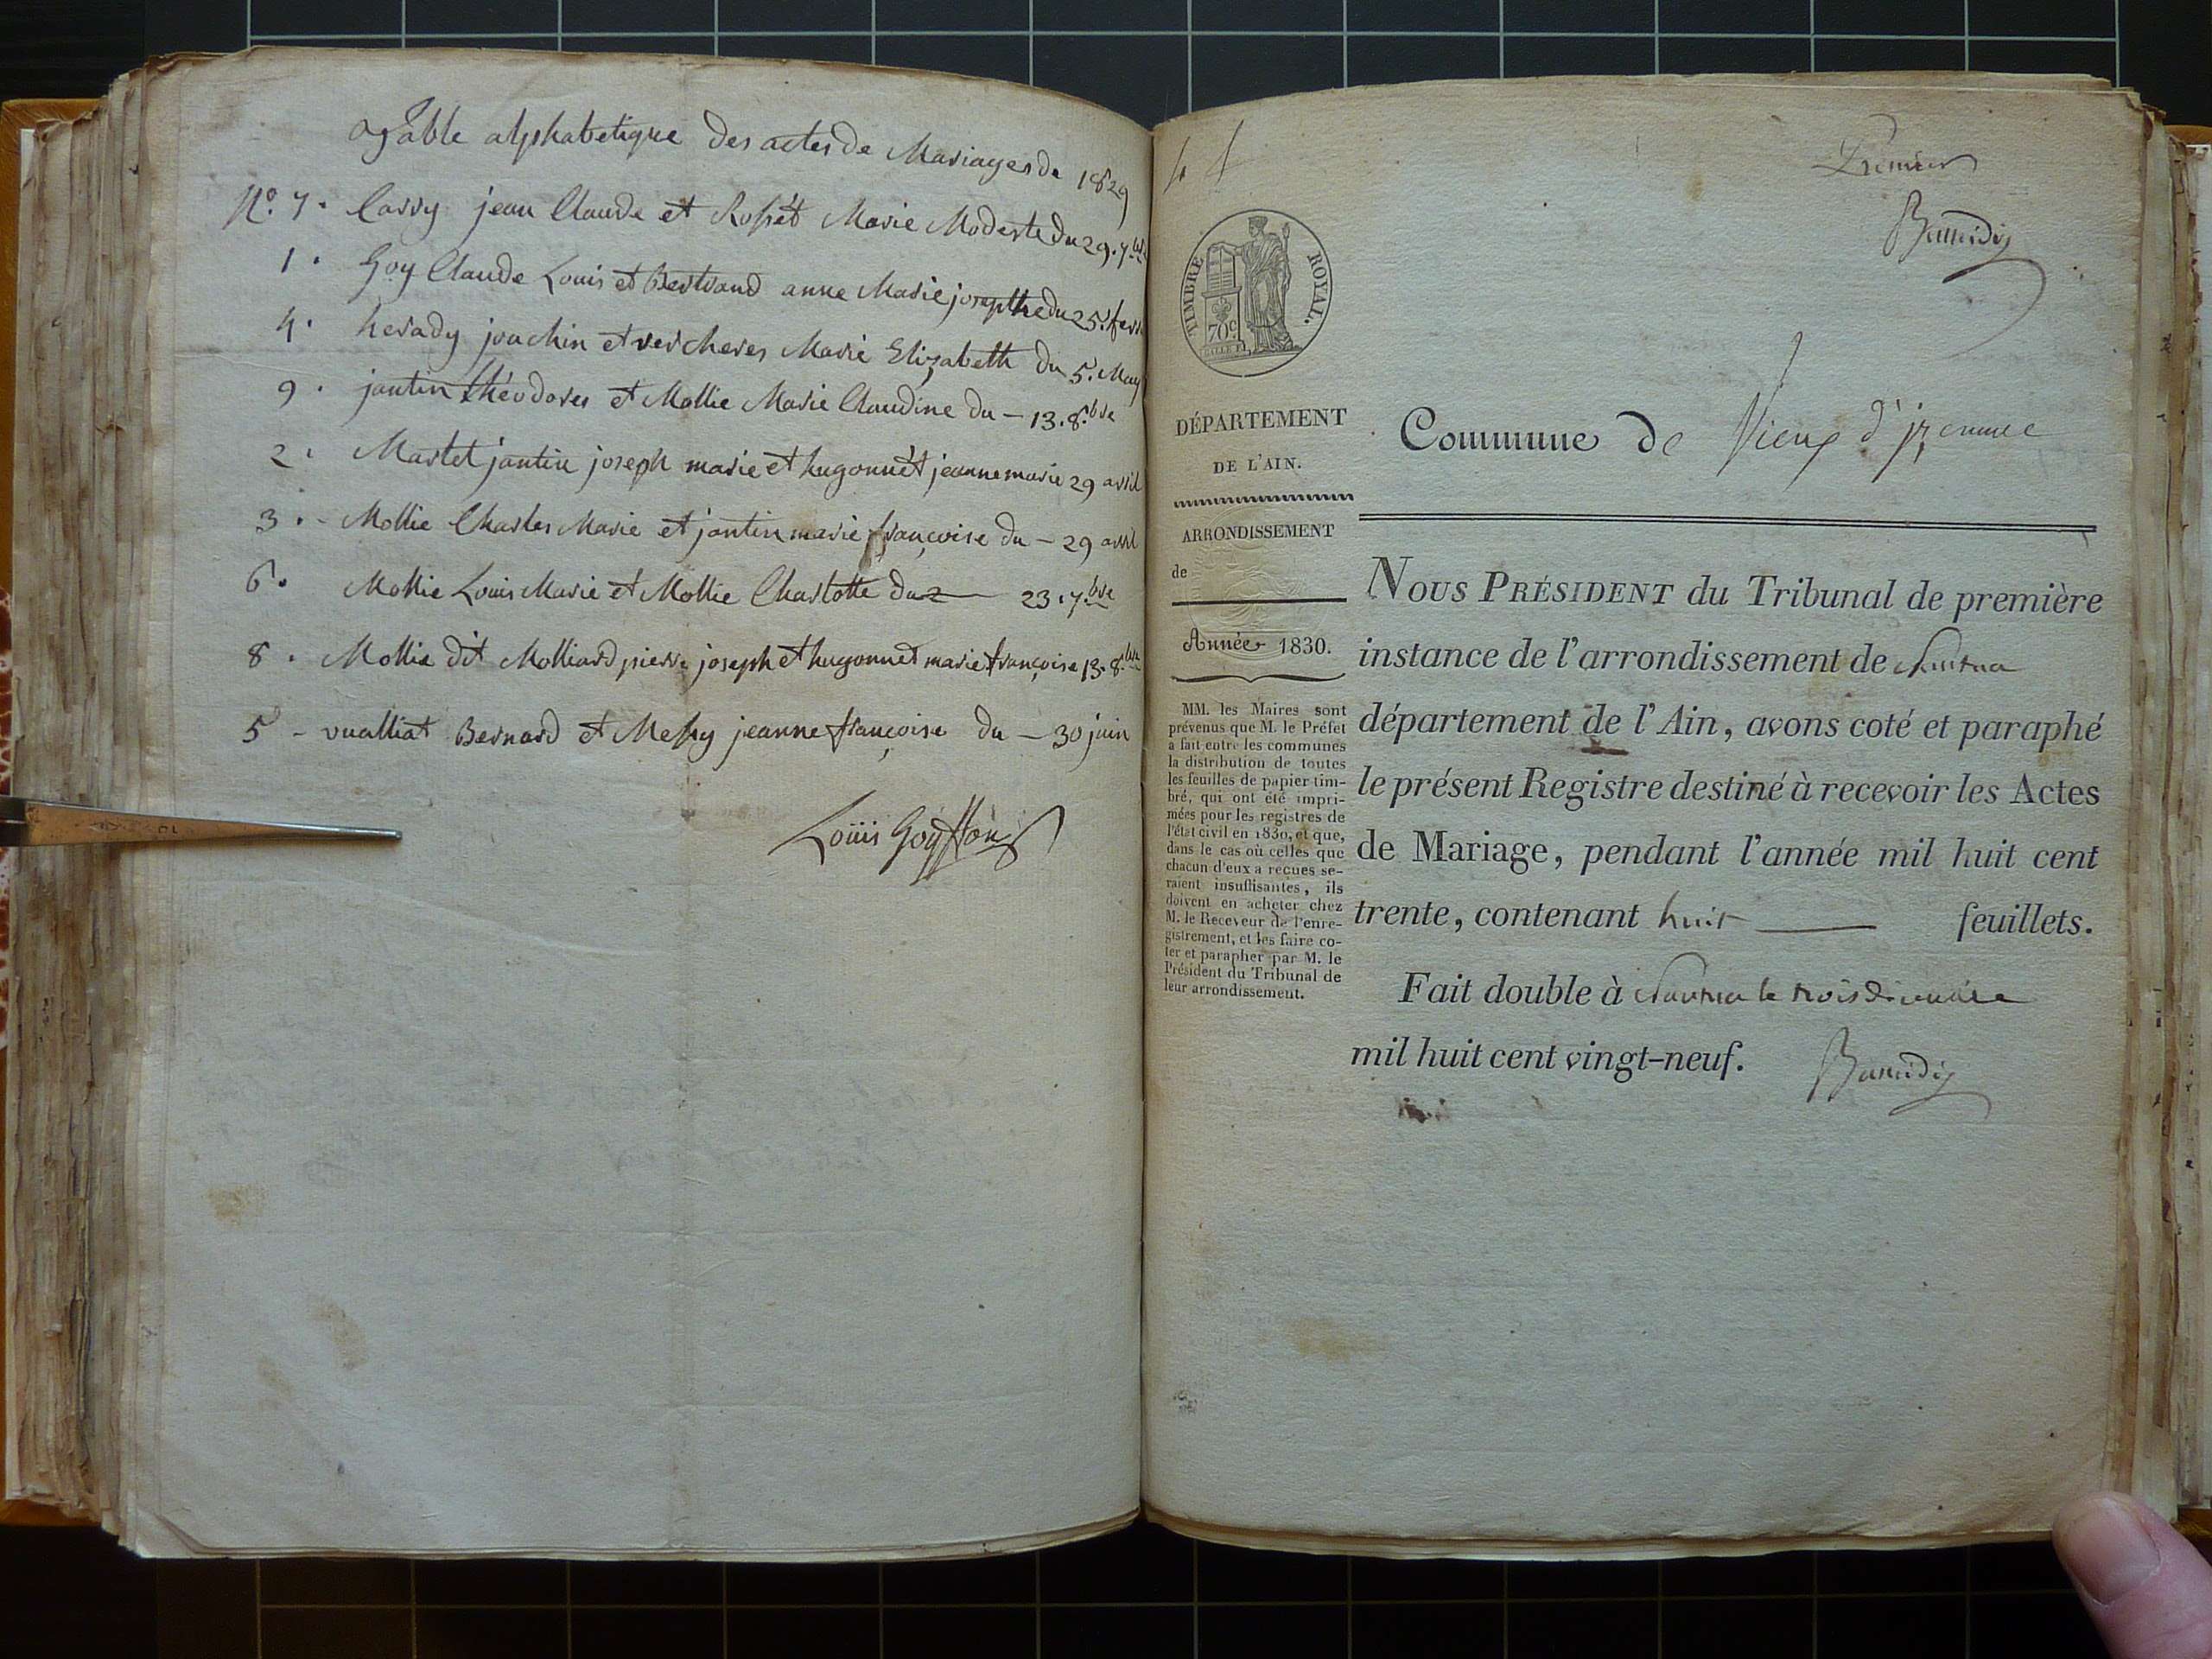 Table alphabetique des actes de Mariages de 1829
N.º 7. Cassy jean Claude et Rossét Marie Modeste du 29. 7.bre
1. Goy Claude Louis et Bertrand anne Marie josepthe du 25. fevr
4. herady joachin et vercheres Marie Elizabeth du 5. May
9. jantin théodores et Mollie Marie Claudine du – 13. 8.bre
2. Martel jantin joseph marie et hugonnét jeanne marie 29 avril
3. - Mollie Charles Marie et jantin marie françoise du – 29 avril
6. Mollie Louis Marie et Mollie Charlotte du 2 23. 7.bre
8. Mollie dit Molliard pierre joseph et hugonnet marie françoise 13. 8.bre
5 - vualliat Bernard et Messy jeanne françoise du – 30 juin
Louis Goyffon
Premier
TIMBRE ROYAL.
70 c
DÉPARTEMENT
DE L'AIN.
ARRONDISSEMENT
de
Année 1830.
MM. les Maires sont
prévenus que M. le Préfet
a fait entre les communes
la distribution de toutes
les feuilles de papier tim-
bré, qui ont été impri-
mées pour les registres de
l'état civil en 1830, et que,
dans le cas où celles que
chacun d'eux a reçues se-
raient insuffisantes, ils
doivent en acheter chez
M. le Receveur de l'enre-
gistrement, et les faire co-
ter et parapher par M. le
Président du Tribunal de
leur arrondissement.
Commune de Vieux d'jzenave
NOUS PRÉSIDENT du Tribunal de première
instance de l'arrondissement de Nantua
département de l'Ain, avons coté et paraphé
le présent Registre destiné à recevoir les Actes
de Mariage, pendant l'année mil huit cent
trente, contenant huit feuillets.
Fait double à Nantua le trois décembre
mil huit cent vingt-neuf.